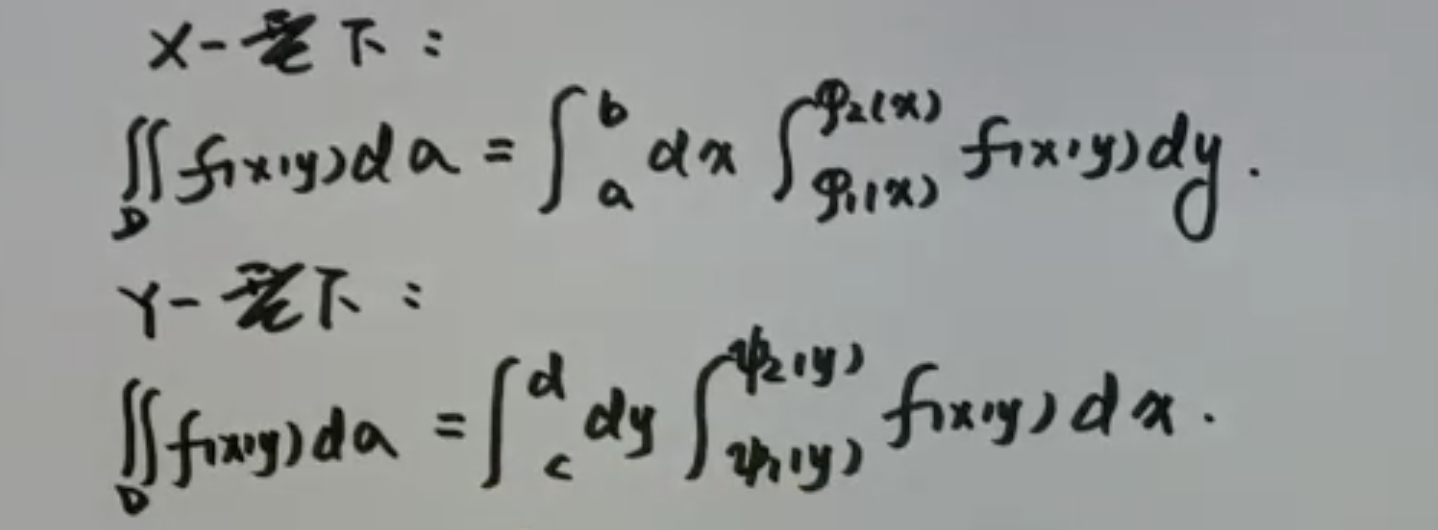 X-型下：
∬_D f(x,y)da = ∫_a^b dx ∫_{φ₁(x)}^{φ₂(x)} f(x,y)dy.
Y-型下：
∬_D f(x,y)da = ∫_c^d dy ∫_{ψ₁(y)}^{ψ₂(y)} f(x,y)dx.